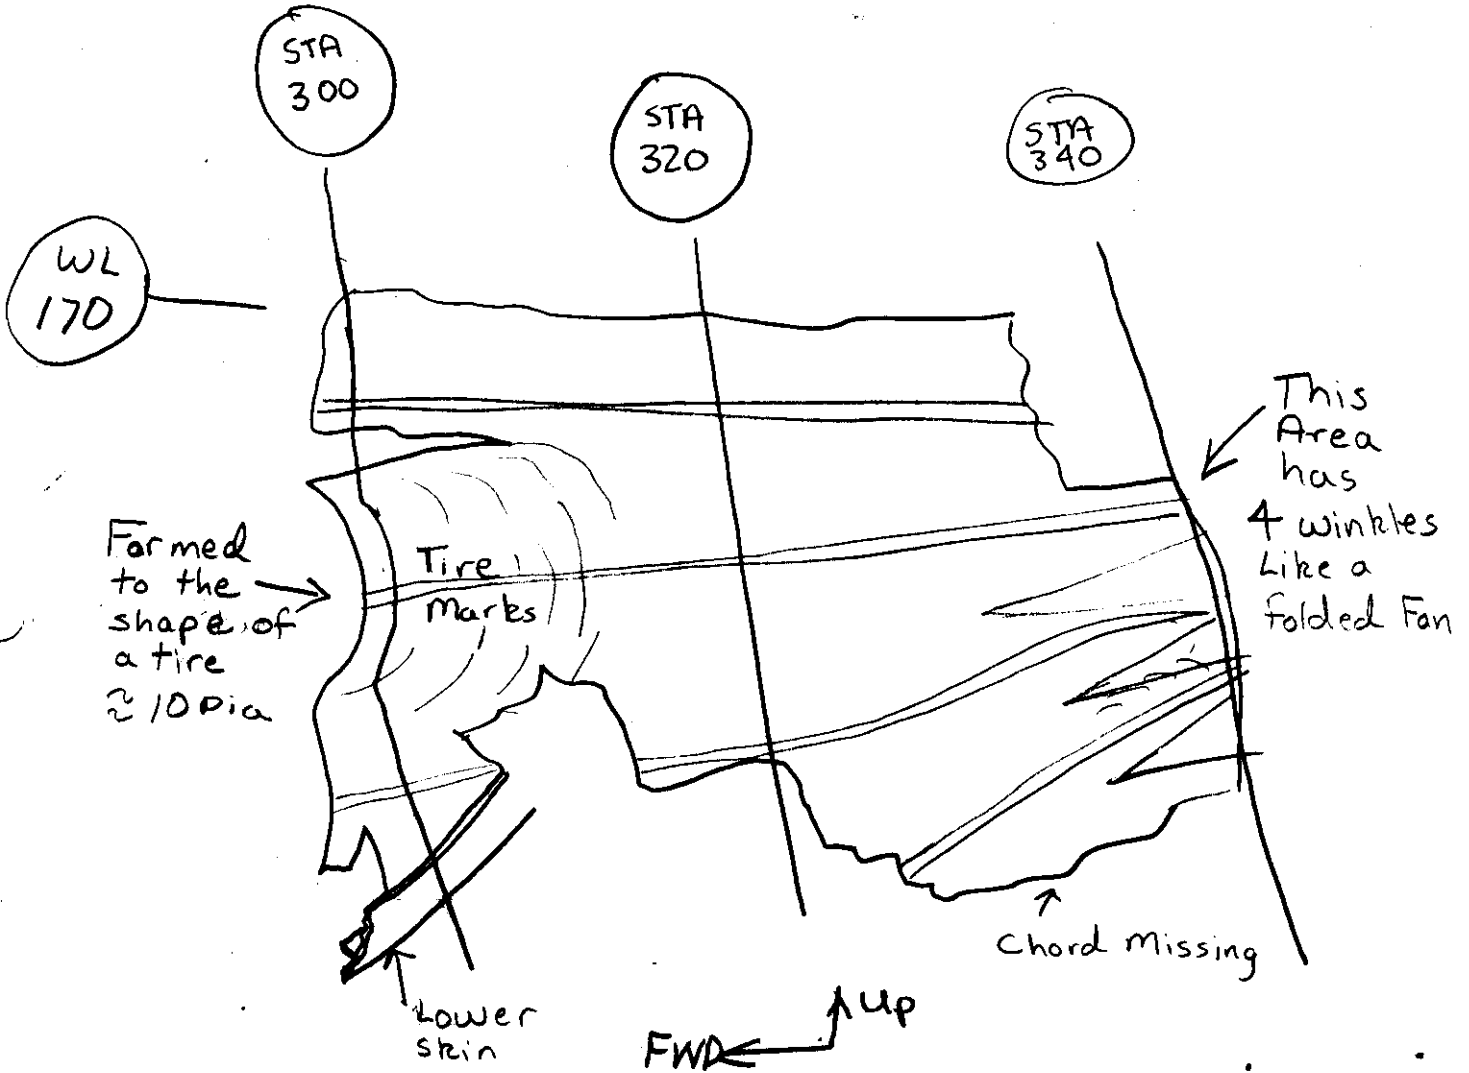 STA
300
STA
320
STA
340
WL
170
This
Area
has
4 winkles
Like a
folded Fan
Formed
to the
shape of
a tire
≈ 10 Dia
Tire
Marks
Chord Missing
Lower
skin
Up
FWD